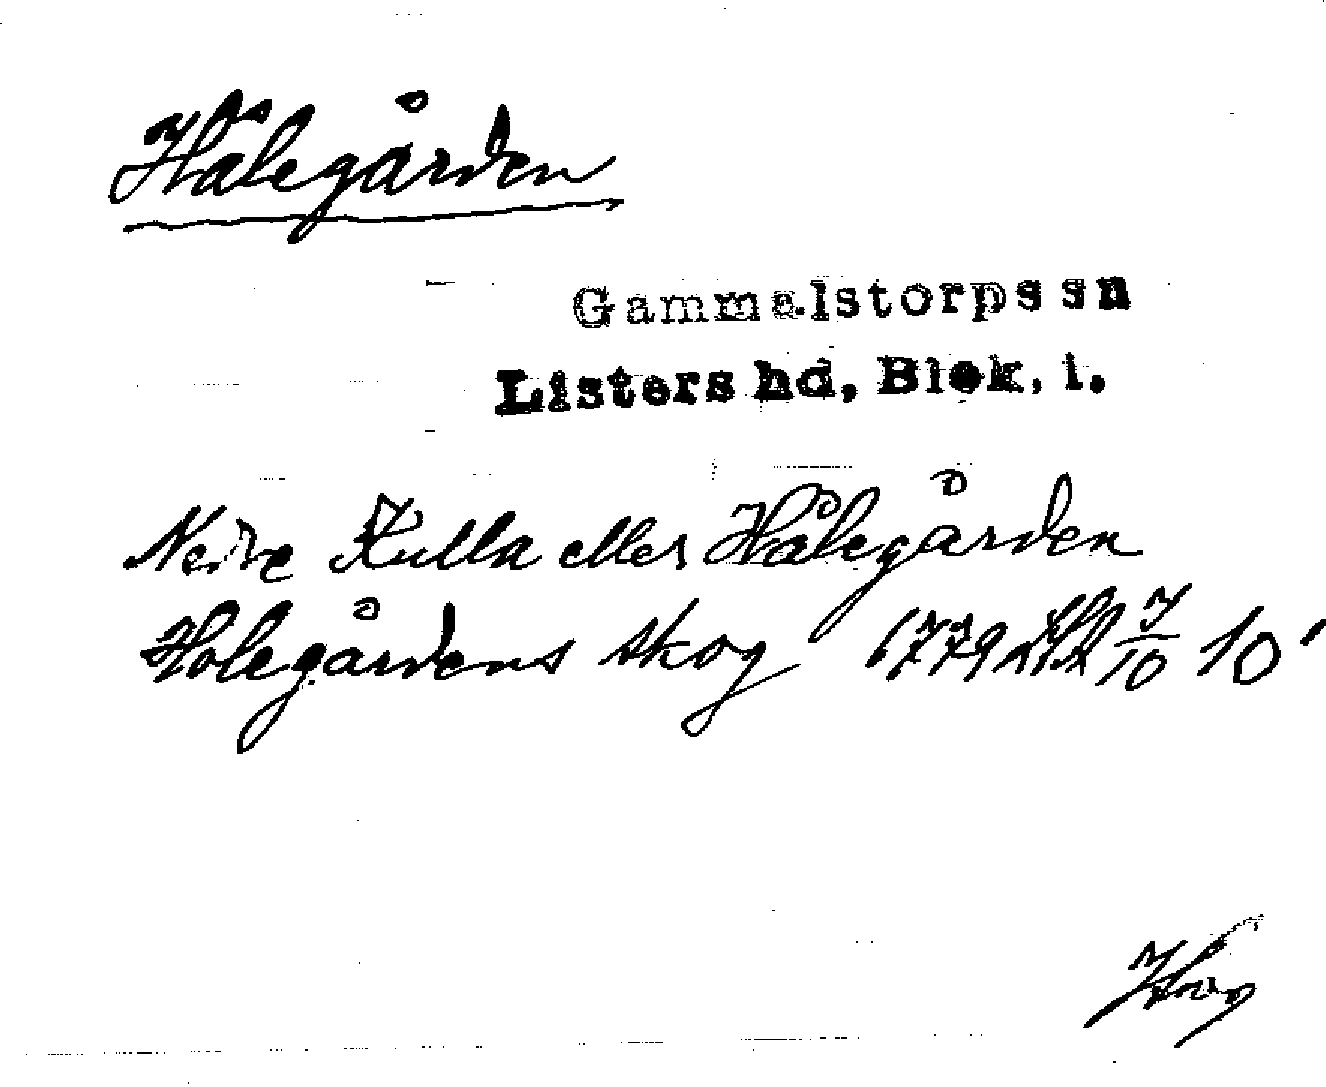 Hålegården
Gammalstorps sn
Listers hd, Blek. l.
Nedre Kulla eller Hålegården
Holegårdens skog 1779 7/10 10'